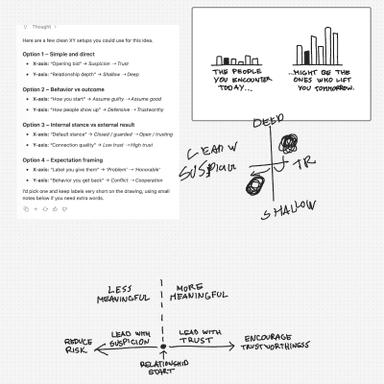 Thought
Here are a few clean XY setups you could use for this idea.
Option 1 – Simple and direct
X-axis: "Opening bid" → Suspicion → Trust
Y-axis: "Relationship depth" → Shallow → Deep
Option 2 – Behavior vs outcome
X-axis: "How you start" → Assume guilty → Assume good
Y-axis: "How people show up" → Defensive → Trustworthy
Option 3 – Internal stance vs external result
X-axis: "Default stance" → Closed / guarded → Open / trusting
Y-axis: "Connection quality" → Low trust → High trust
Option 4 – Expectation framing
X-axis: "Label you give them" → 'Problem' → Honorable'
Y-axis: "Behavior you get back" → Conflict → Cooperation
I'd pick one and keep labels very short on the drawing, using small
notes below if you need extra words.
THE PEOPLE
YOU ENCOUNTER
TODAY...
...MIGHT BE THE
ONES WHO LIFT
YOU TOMORROW.
DEEP
LEAD W
SUSPICION
TR
SHALLOW
LESS
MEANINGFUL
MORE
MEANINGFUL
REDUCE
RISK
LEAD WITH
SUSPICION
LEAD WITH
TRUST
ENCOURAGE
TRUSTWORTHINESS
RELATIONSHIP
START